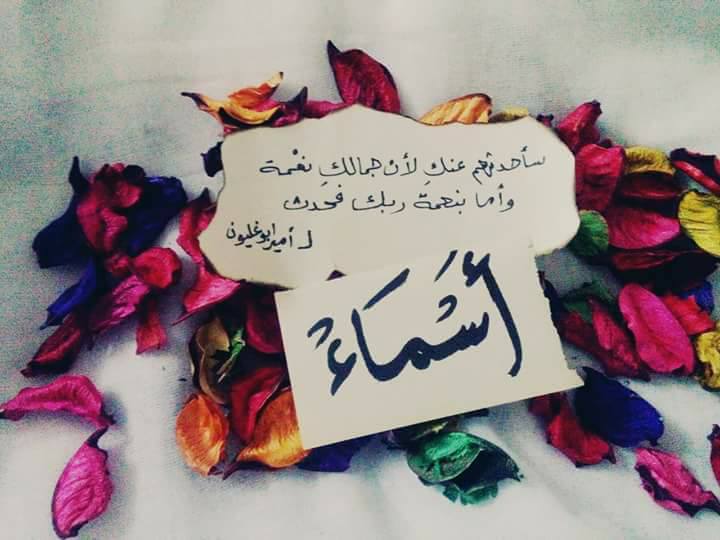 سأحدثهم عنكِ لأن جمالكِ نعْمة
وأما بنعمة ربك فحدث
لـ أمير ابو غليون
أَسْمَاءْ